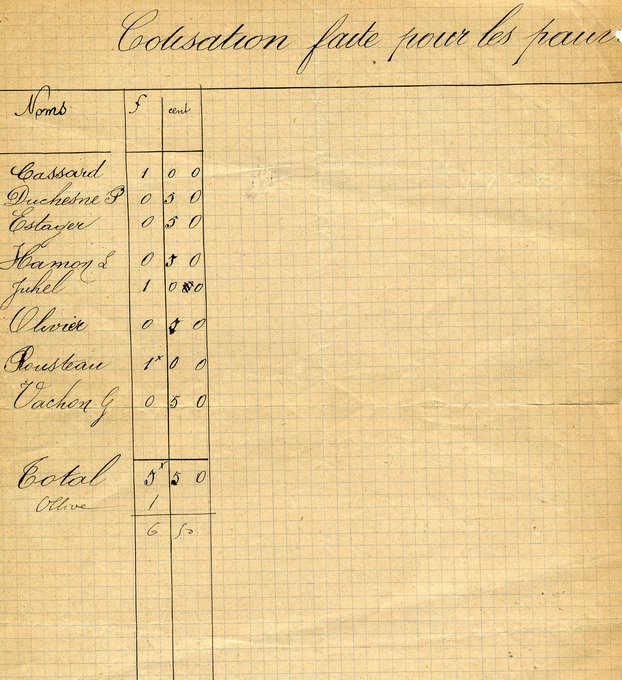 Cotisation faite pour les pauv
Noms f cent
Cassard 1 0 0
Duchesne P 0 5 0
Estager 0 5 0
Hamon L 0 5 0
Juhel 1 0 0
Olivier 0 5 0
Rousteau 1 0 0
Vachon G 0 5 0
Total 5 50
Ollive 1
6 50